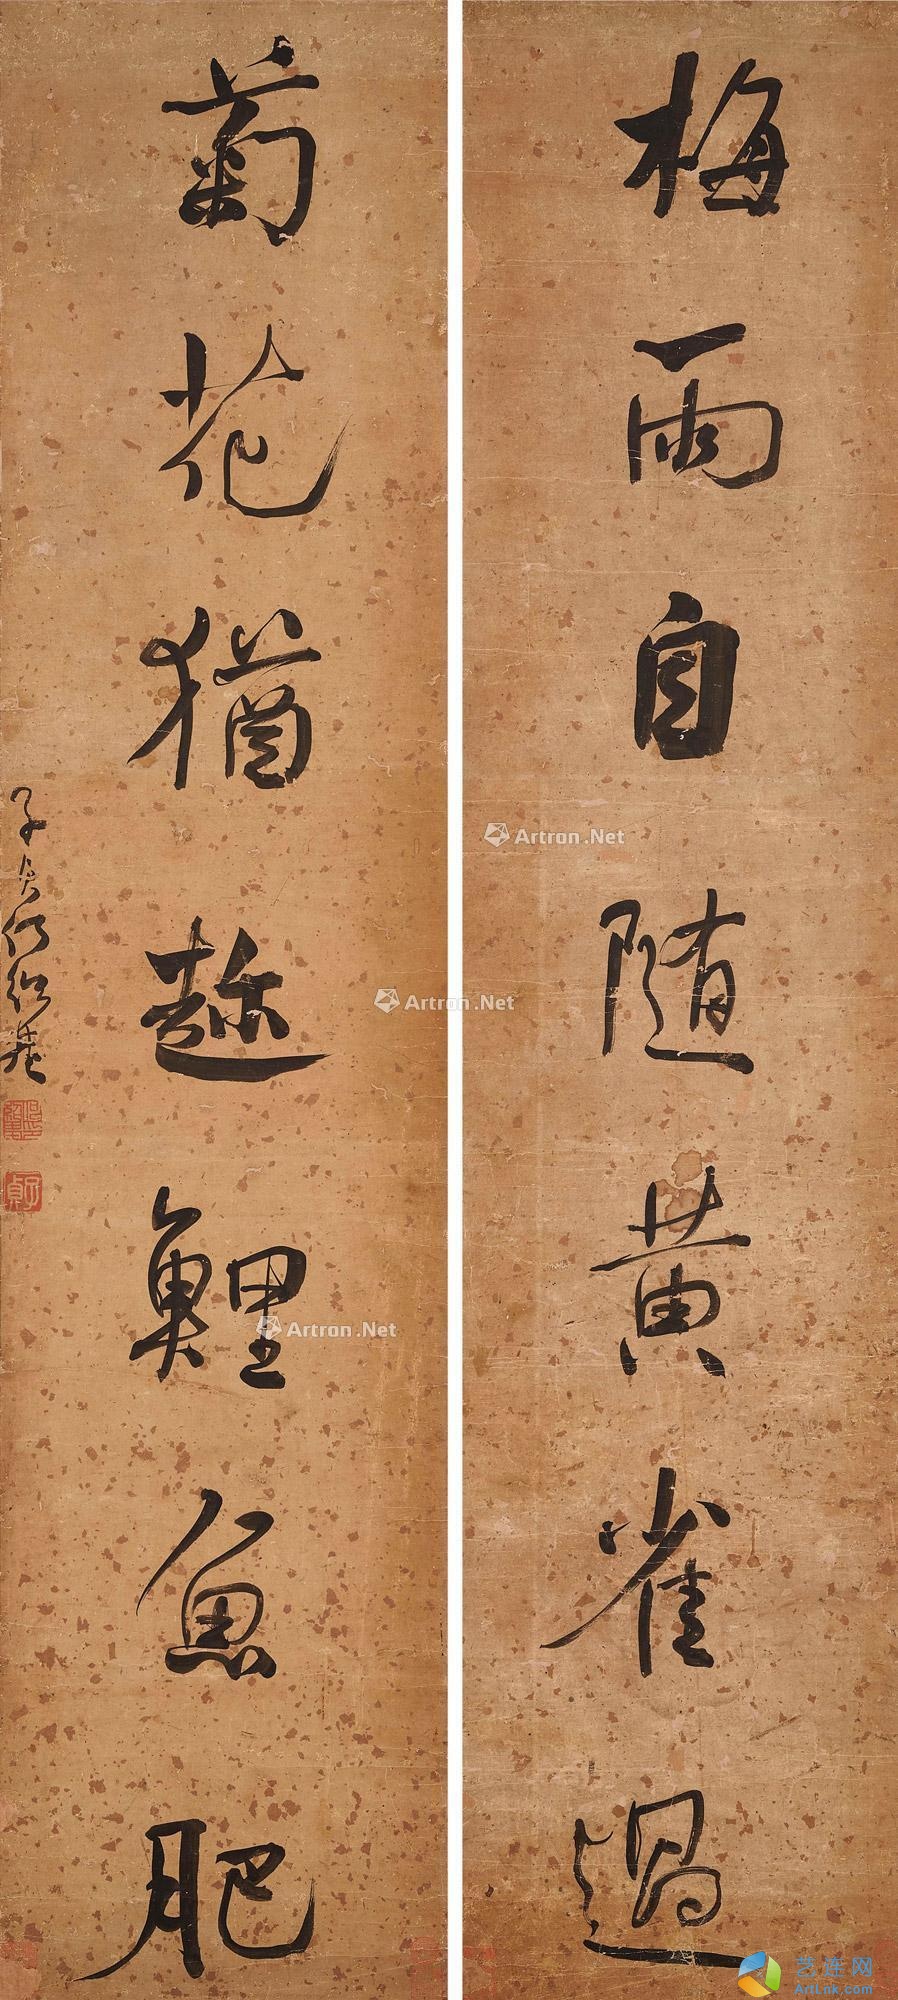 梅雨自随黄雀過
菊花猶趂鯉魚肥
子貞何紹基
子貞
Artron.Net
Artron.Net
Artron.Net
艺连网
ArtLnk.com